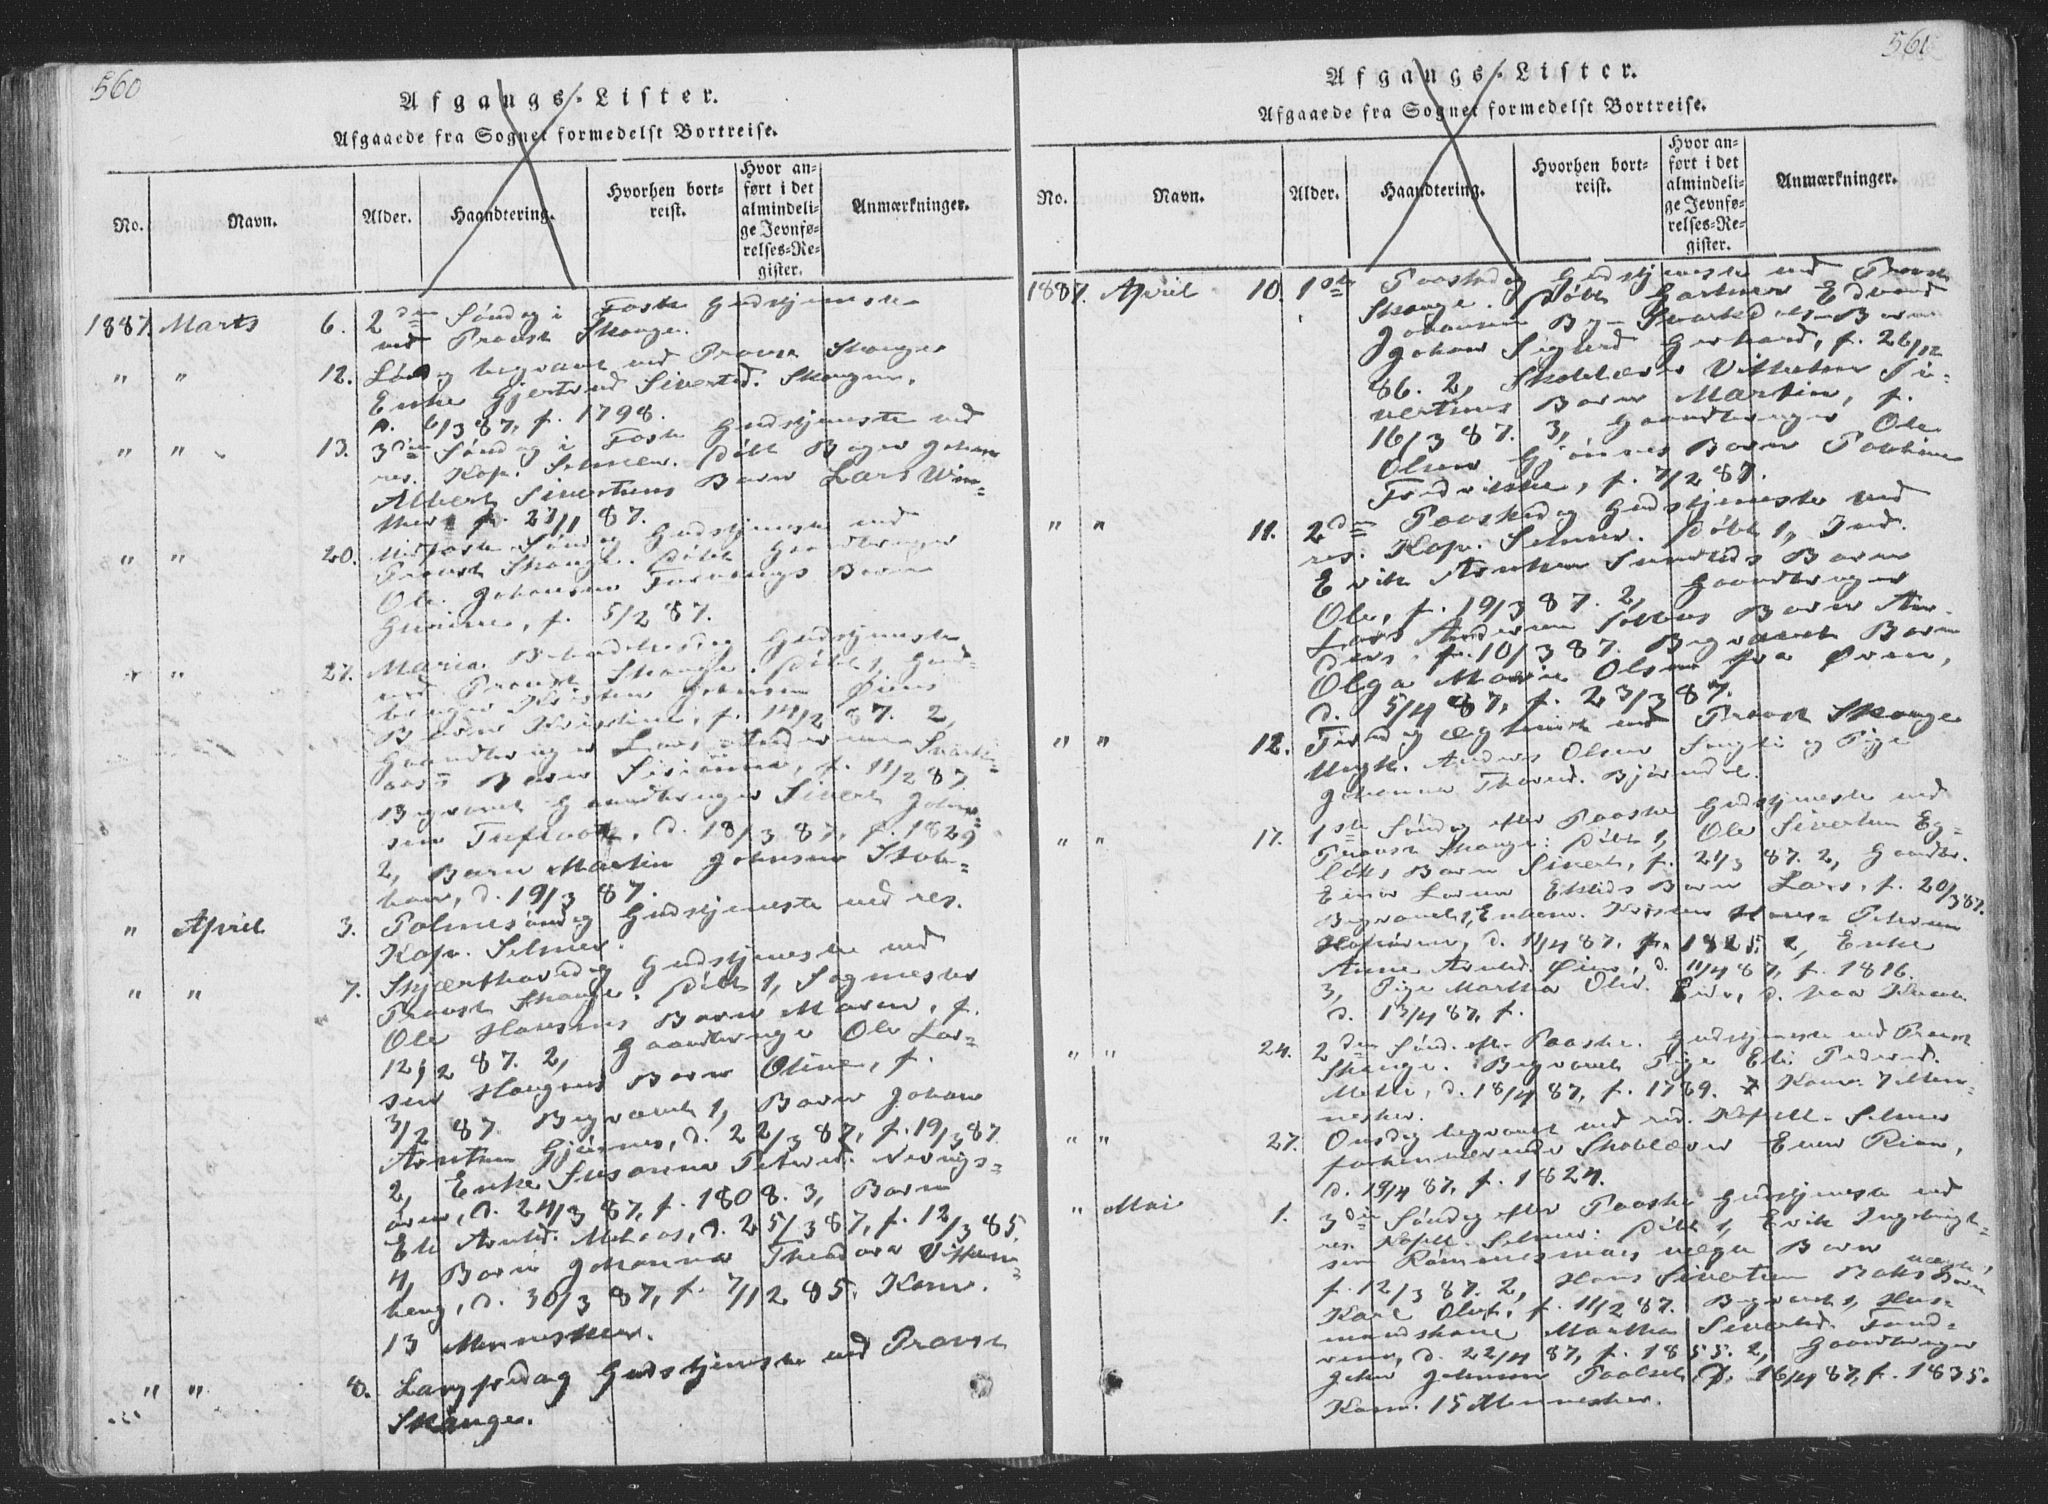 560
Afgangs-Lister.
Afgaaede fra Sognet formedelst Bortreise.
No.
Navn.
Alder.
Haandtering.
Hvorhen bort-
reist.
Hvor an-
ført i det
almindeli-
ge Jevnfø-
relses-Re-
gister.
Anmærkninger.
1887. Marts 6. 2den Søndag i Faste Gudstjeneste
ved Provst Skauge.
" " 12. Lørdag begravet ved Provst Skauge
Enke Gjertrud Sivertsd. Skaugen,
d. 6/3 87, f. 1798.
" " 13. 3die Søndag i Faste Gudstjeneste ved
res. Kap. Selmer. Døbt Bager Johan
Albert Sivertsens Barn Lars Win-
ther f. 27/1 87.
" " 20. Midfaste Søndag Gudstjeneste ved
Provst Skauge. Døbt Gaardbruger
Ole Johansen Barn
f. 5/2 87.
" " 27. Maria Bebudelsesdag Gudstjeneste
ved Provst Skauge. Døbt 1, Gaard-
bruger Kristen Johnsen Øiens
Barn Kristine, f. 14/2 87. 2,
Gaardbruger Lars Andersen
Barn f. 11/2 87.
Begravet Gaardbruger Sivert John-
sen d. 18/3 87, f. 1829
2, Barn Martin Johnsen
d. 19/3 87.
" April 3. Palmesøndag Gudstjeneste ved res.
Kap. Selmer.
" " 7. Skjærthorsdag Gudstjeneste ved
Provst Skauge. Døbt 1, Sagmester
Ole Hansens Barn Maren, f.
12/2 87. 2, Gaardbruger Ole Lar-
sen Haugnes Barn Oline, f.
3/2 87. Begravet 1, Barn Johan
Arntsen Gjønnes, d. 22/3 87, f. 19/3 87
2, Enke Susanna Petersd.
d. 24/3 87, f. 1808. 3, Barn
Eli Arntsd. Melaas, d. 25/3 87, f. 12/3 85.
4, Barn Johanna Theodora
d. 30/3 87, f. 7/12 85. Kom.
13 Mennesker.
" " 8. Langfredag Gudstjeneste ved Provst
Skauge.
561
Afgangs-Lister.
Afgaaede fra Sognet formedelst Bortreise.
No.
Navn.
Alder.
Haandtering.
Hvorhen bort-
reist.
Hvor an-
ført i det
almindeli-
ge Jevnfø-
relses-Re-
gister.
Anmærkninger.
1887. April 10. 1ste Paaskedag Gudstjeneste ved Provst
Skauge. Døbt Gartner Edvard
Johansen By- Barn
Johan Sigurd Gerhard, f. 26/12
86. 2, Skolelærer Vilhelm Si-
vertsens Barn Martin, f.
16/3 87. 3, Gaardbruger Ole
Olsen Gjønnes Barn Pauline
Fredrikke, f. 7/2 87.
" " 11. 2den Paaskedag Gudstjeneste ved
res. Kap. Selmer. Døbt 1, Ind.
Erik Arntsen Barn
Ole, f. 19/3 87. 2, Gaardbruger
Lars Andersen Barn An-
ders f. 10/3 87. Begravet Barn
Olga Marie Olsen fra Øren,
d. 5/4 87, f. 23/3 87.
" " 12. Tirsdag ægteviet ved Provst Skauge
Ungk. Anders Olsen og Pige
Johanna Thorsd. Bjørndal.
" " 17. 1ste Søndag efter Paaske Gudstjeneste ved
Provst Skauge: Døbt 1, Ole Sivertsen Eg-
Barn Sivert, f. 21/3 87. 2, Gaardbr.
Einar Larsen Barn Lars, f. 20/3 87.
Begravet 1, Enkem. Kristen Petersen
d. 11/4 87, f. 1825. 2, Enke
Anne Arntsd. Øien, d. 11/4 87, f. 1816.
3, Pige Martha Olsd. d. paa
d. 13/4 87, f.
" " 24. 2den Sønd. efter Paaske. Gudstjeneste ved Provst
Skauge. Begravet Pige Eli Pedersd.
d. 18/4 87, f. 1789. Kom. 7 Men-
nesker.
" " 27. Onsdag begravet ved res. Kapell. Selmer
forhenværende Skolelærer Rian,
d. 19/4 87, f. 1824.
" Mai 1. 3die Søndag efter Paaske Gudstjeneste ved
res. Kapell. Selmer: Døbt 1, Erik Ingebrigt-
sen Barn
f. 12/3 87. 2, Hans Sivertsen Baks Barn
Karl Oluf, f. 11/2 87. Begravet 1, Hus-
mandskone Martha Sivertsd.
d. 22/4 87, f. 1855. 2, Gaardbruger
John Johnsen d. 16/4 87, f. 1835.
Kom. 15 Mennesker.